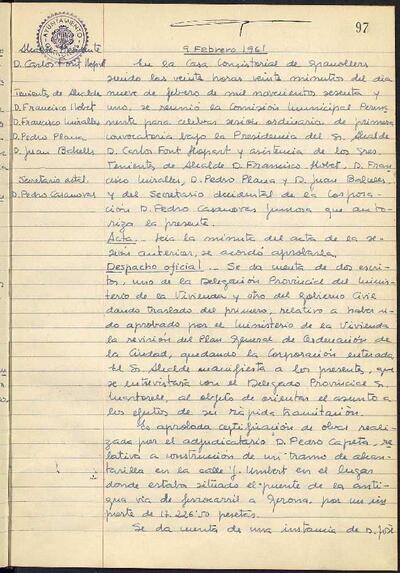 97
AYUNTAMIENTO
9 Febrero 1961
Alcalde Presidente
D. Carlos Font Llopart
Tenientes de Alcalde
D. Francisco Llobet
D. Francisco Miralles
D. Pedro Plana
D. Juan
Secretario actal.
D. Pedro Casanovas
En la Casa Consistorial de Granollers
siendo las veinte horas veinte minutos del dia
nueve de febrero de mil novecientos sesenta y
uno, se reunió la Comisión Municipal Perma
nente para celebrar sesión ordinaria de primera
convocatoria bajo la Presidencia del Sr. Alcalde
D. Carlos Font Llopart y asistencia de los Sres.
Tenientes de Alcalde D. Francisco Llobet, D. Fran
cisco Miralles, D. Pedro Plana y D. Juan
y del Secretario accidental de la Corpora-
ción D. Pedro Casanovas que au to
riza la presente.
Acta.- Leida la minuta del acta de la se
sión anterior, se acordó aprobarla.
Despacho oficial.- Se da cuenta de dos escri
tos, uno de la Delegación Provincial del Minis
terio de la Vivienda y otro del Gobierno Civil
dando traslado del primero, relativo a haber si
do aprobado por el Ministerio de la Vivienda
la revisión del Plan General de Ordenación de
la Ciudad, quedando la Corporación enterada.
El Sr. Alcalde manifiesta a los presentes, que
se entrevistaría con el Delegado Provincial Sr.
Martorell, al objeto de orientar el asunto a
los efectos de su rápida tramitación.
Es aprobada certificación de obras reali
zada por el adjudicatario D. Pedro Capeta, re
lativa a construcción de un tramo de alcan
tarilla en la calle J. Umbert en el lugar
donde estaba situado el puente de la anti
gua via de ferrocarril a Gerona, por un im
porte de 17.226'50 pesetas.
Se da cuenta de una instancia de D. José